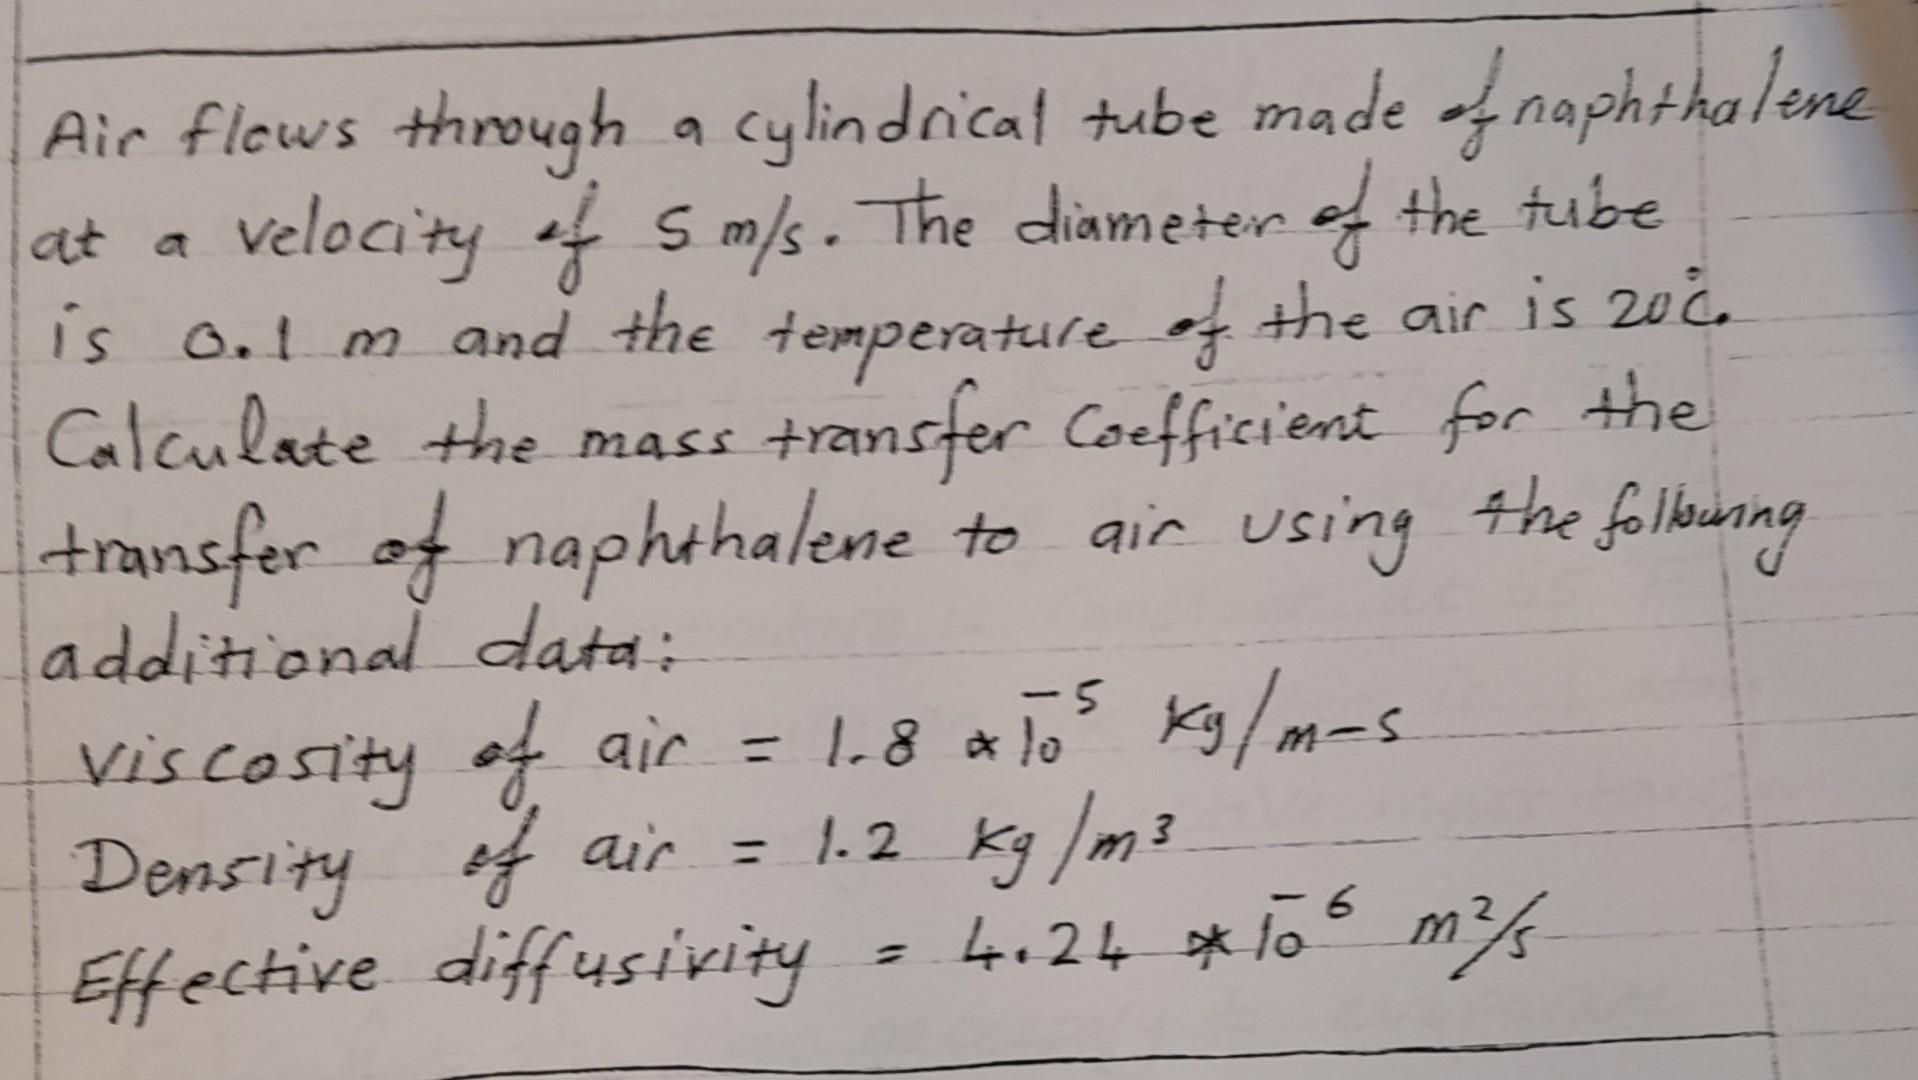 Air flows through a cylindrical tube made of naphthalene
at a velocity of 5 m/s. The diameter of the tube
is 0.1 m and the temperature of the air is 20°c.
Calculate the mass transfer Coefficient for the
transfer of naphthalene to air using the following
additional data:
Viscosity of air = 1.8 * 10⁻⁵ kg/m-s
Density of air = 1.2 kg/m³
Effective diffusivity = 4.24 * 10⁻⁶ m²/s